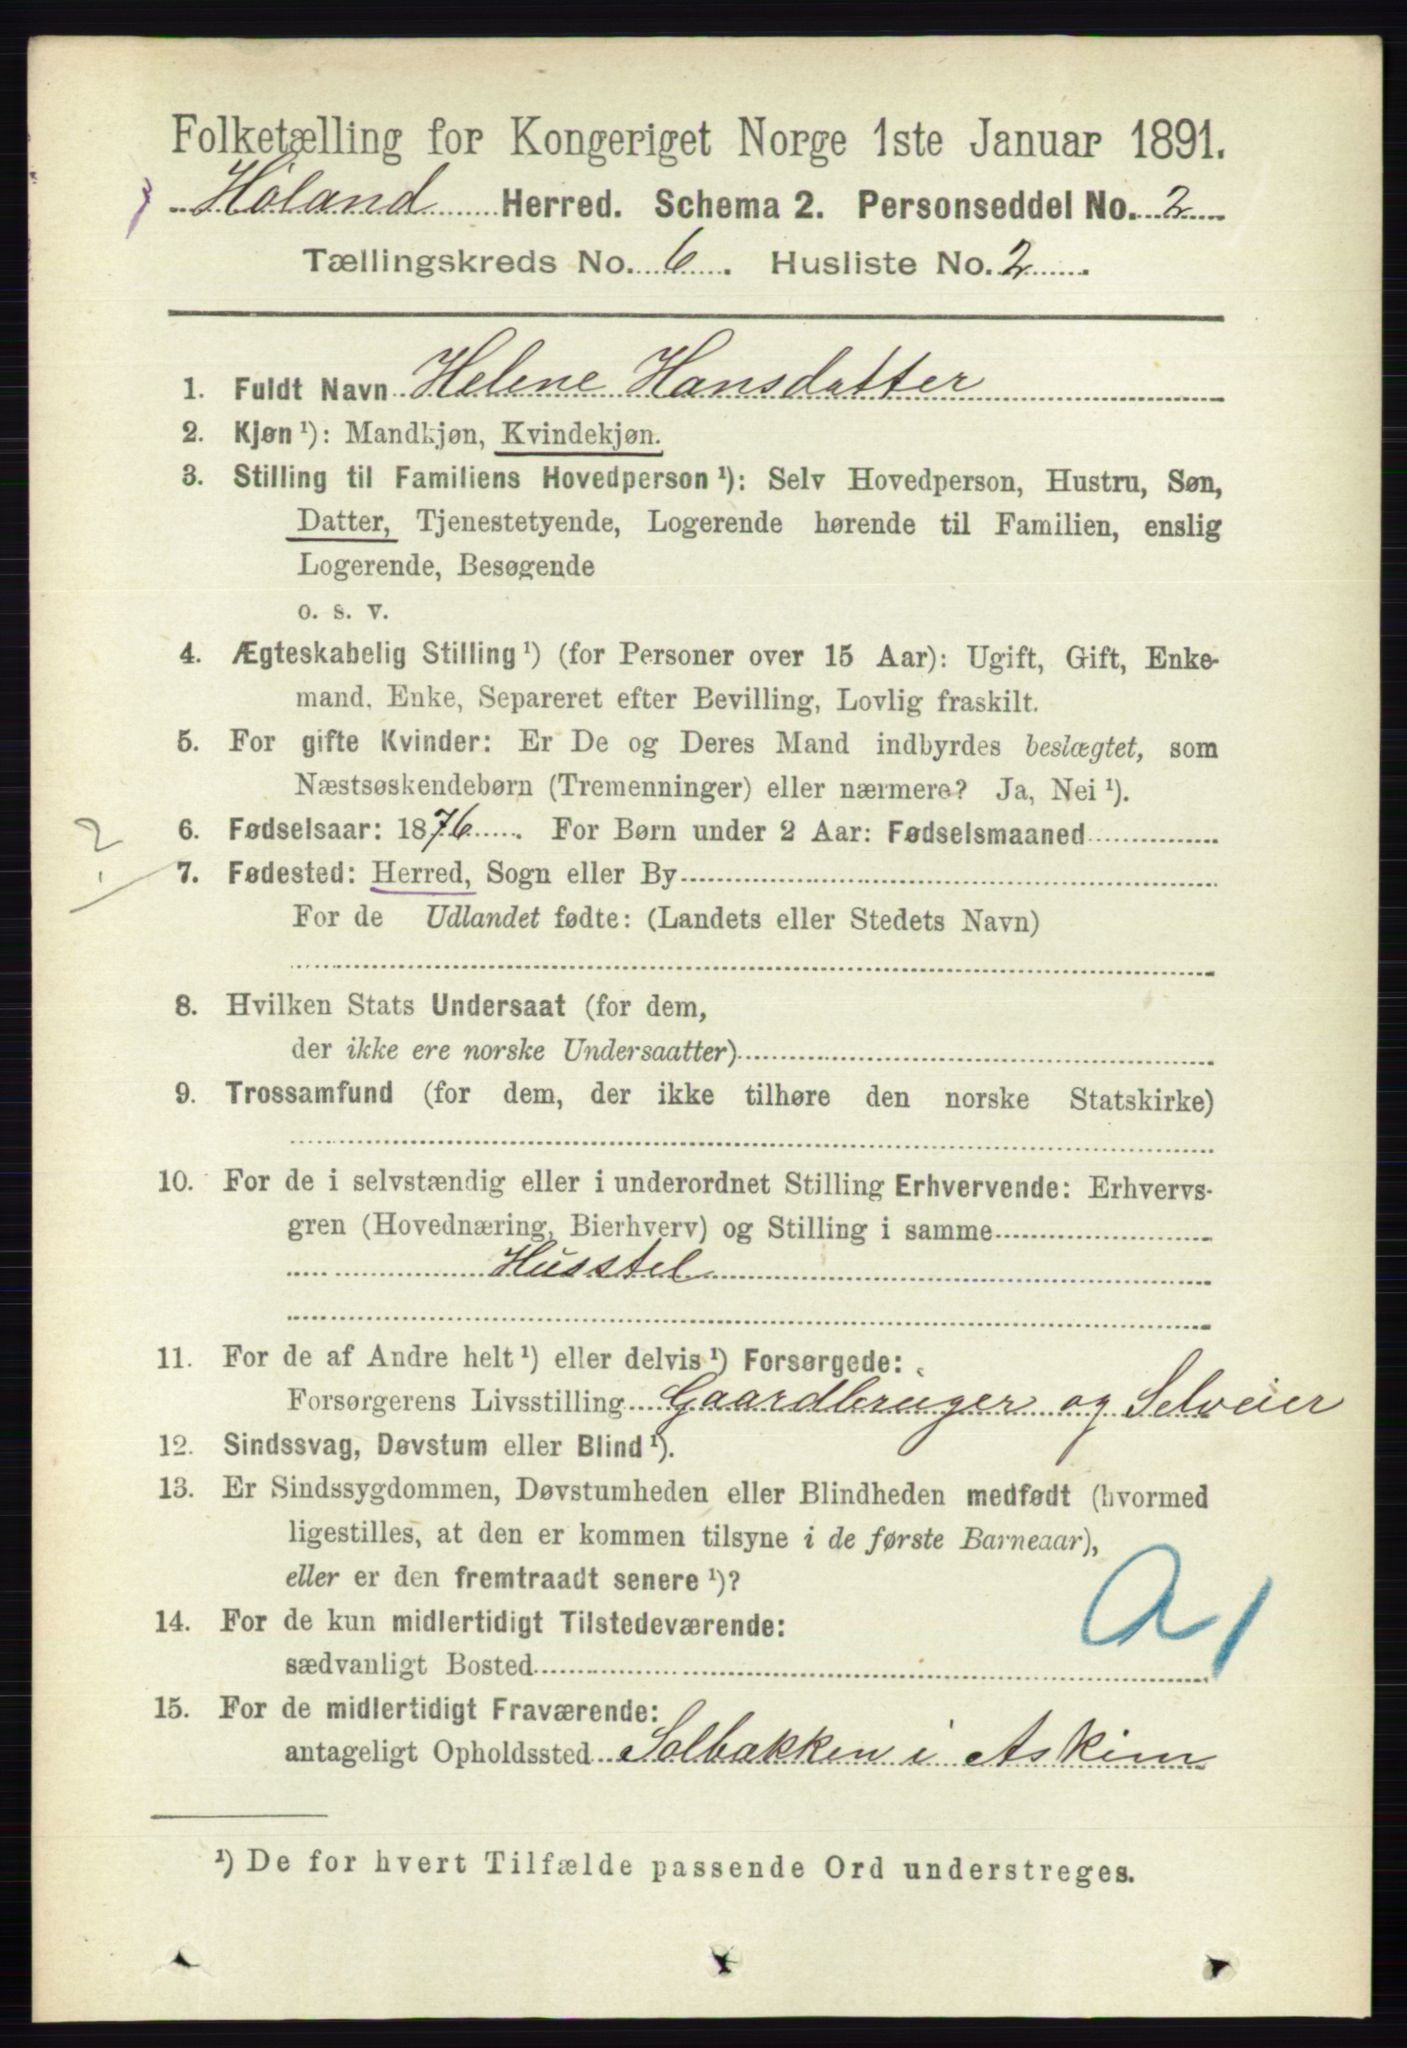 Folketælling for Kongeriget Norge 1ste Januar 1891.
Høland Herred. Schema 2. Personseddel No. 2
Tællingskreds No. 6. Husliste No. 2
1. Fuldt Navn Helene Hansdatter
2. Kjøn ¹): Mandkjøn, Kvindekjøn.
3. Stilling til Familiens Hovedperson ¹): Selv Hovedperson, Hustru, Søn,
Datter, Tjenestetyende, Logerende hørende til Familien, enslig
Logerende, Besøgende
o. s. v.
4. Ægteskabelig Stilling ¹) (for Personer over 15 Aar): Ugift, Gift, Enke-
mand, Enke, Separeret efter Bevilling, Lovlig fraskilt.
5. For gifte Kvinder: Er De og Deres Mand indbyrdes beslægtet, som
Næstsøskendebørn (Tremenninger) eller nærmere? Ja, Nei ¹).
6. Fødselsaar: 1876. For Børn under 2 Aar: Fødselsmaaned
2
7. Fødested: Herred, Sogn eller By
For de Udlandet fødte: (Landets eller Stedets Navn)
8. Hvilken Stats Undersaat (for dem,
der ikke ere norske Undersaatter)
9. Trossamfund (for dem, der ikke tilhøre den norske Statskirke)
10. For de i selvstændig eller i underordnet Stilling Erhvervende: Erhvervs-
gren (Hovednæring, Bierhverv) og Stilling i samme
Husstel
11. For de af Andre helt ¹) eller delvis ¹) Forsørgede:
Forsørgerens Livsstilling Gaardbruger og Selveier
12. Sindssvag, Døvstum eller Blind ¹).
13. Er Sindssygdommen, Døvstumheden eller Blindheden medfødt (hvormed
ligestilles, at den er kommen tilsyne i de første Barneaar),
eller er den fremtraadt senere ¹)?
14. For de kun midlertidigt Tilstedeværende:
sædvanligt Bosted
a1
15. For de midlertidigt Fraværende:
antageligt Opholdssted Solbakken i Askim
¹) De for hvert Tilfælde passende Ord understreges.